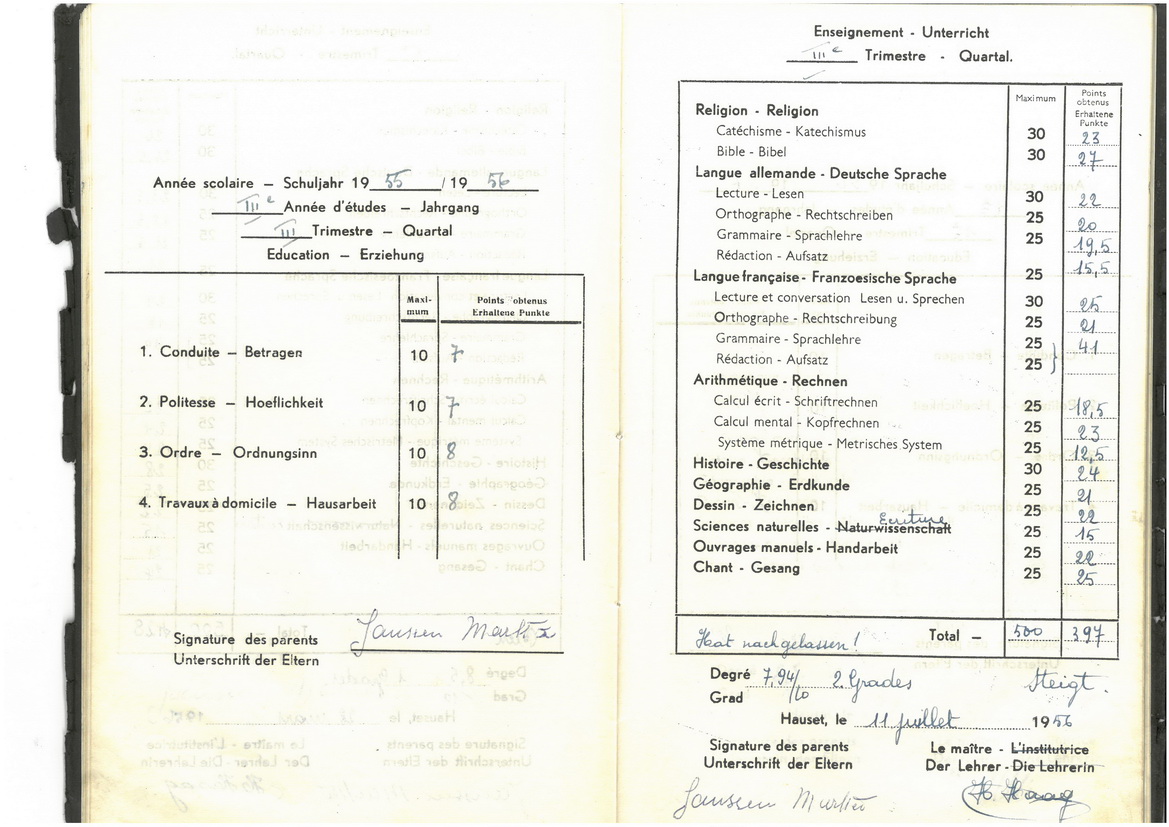 Année scolaire – Schuljahr 19 55 / 19 56
IIIe Année d'études – Jahrgang
III Trimestre – Quartal
Education – Erziehung
Maxi- mum Points obtenus Erhaltene Punkte
1. Conduite – Betragen 10 7
2. Politesse – Hoeflichkeit 10 7
3. Ordre – Ordnungsinn 10 8
4. Travaux à domicile – Hausarbeit 10 8
Signature des parents Janssen Martin
Unterschrift der Eltern
Enseignement - Unterricht
IIIe Trimestre - Quartal.
Maximum Points obtenus Erhaltene Punkte
Religion - Religion
Catéchisme - Katechismus 30 23
Bible - Bibel 30 27
Langue allemande - Deutsche Sprache
Lecture - Lesen 30 22
Orthographe - Rechtschreiben 25 20
Grammaire - Sprachlehre 25 19,5
Rédaction - Aufsatz 25 15,5
Langue française - Franzoesische Sprache
Lecture et conversation Lesen u. Sprechen 30 25
Orthographe - Rechtschreibung 25 21
Grammaire - Sprachlehre 25 41
Rédaction - Aufsatz 25
Arithmétique - Rechnen
Calcul écrit - Schriftrechnen 25 18,5
Calcul mental - Kopfrechnen 25 23
Système métrique - Metrisches System 25 12,5
Histoire - Geschichte 30 24
Géographie - Erdkunde 25 21
Dessin - Zeichnen 25 22
Ecriture
Sciences naturelles - Naturwissenschaft 25 15
Ouvrages manuels - Handarbeit 25 22
Chant - Gesang 25 25
Hat nachgelassen! Total – 500 397
Degré 7,94/10 2. Grades Steigt.
Grad
Hauset, le 11 juillet 1956
Signature des parents Le maître - L'institutrice
Unterschrift der Eltern Der Lehrer - Die Lehrerin
Janssen Martin Haag